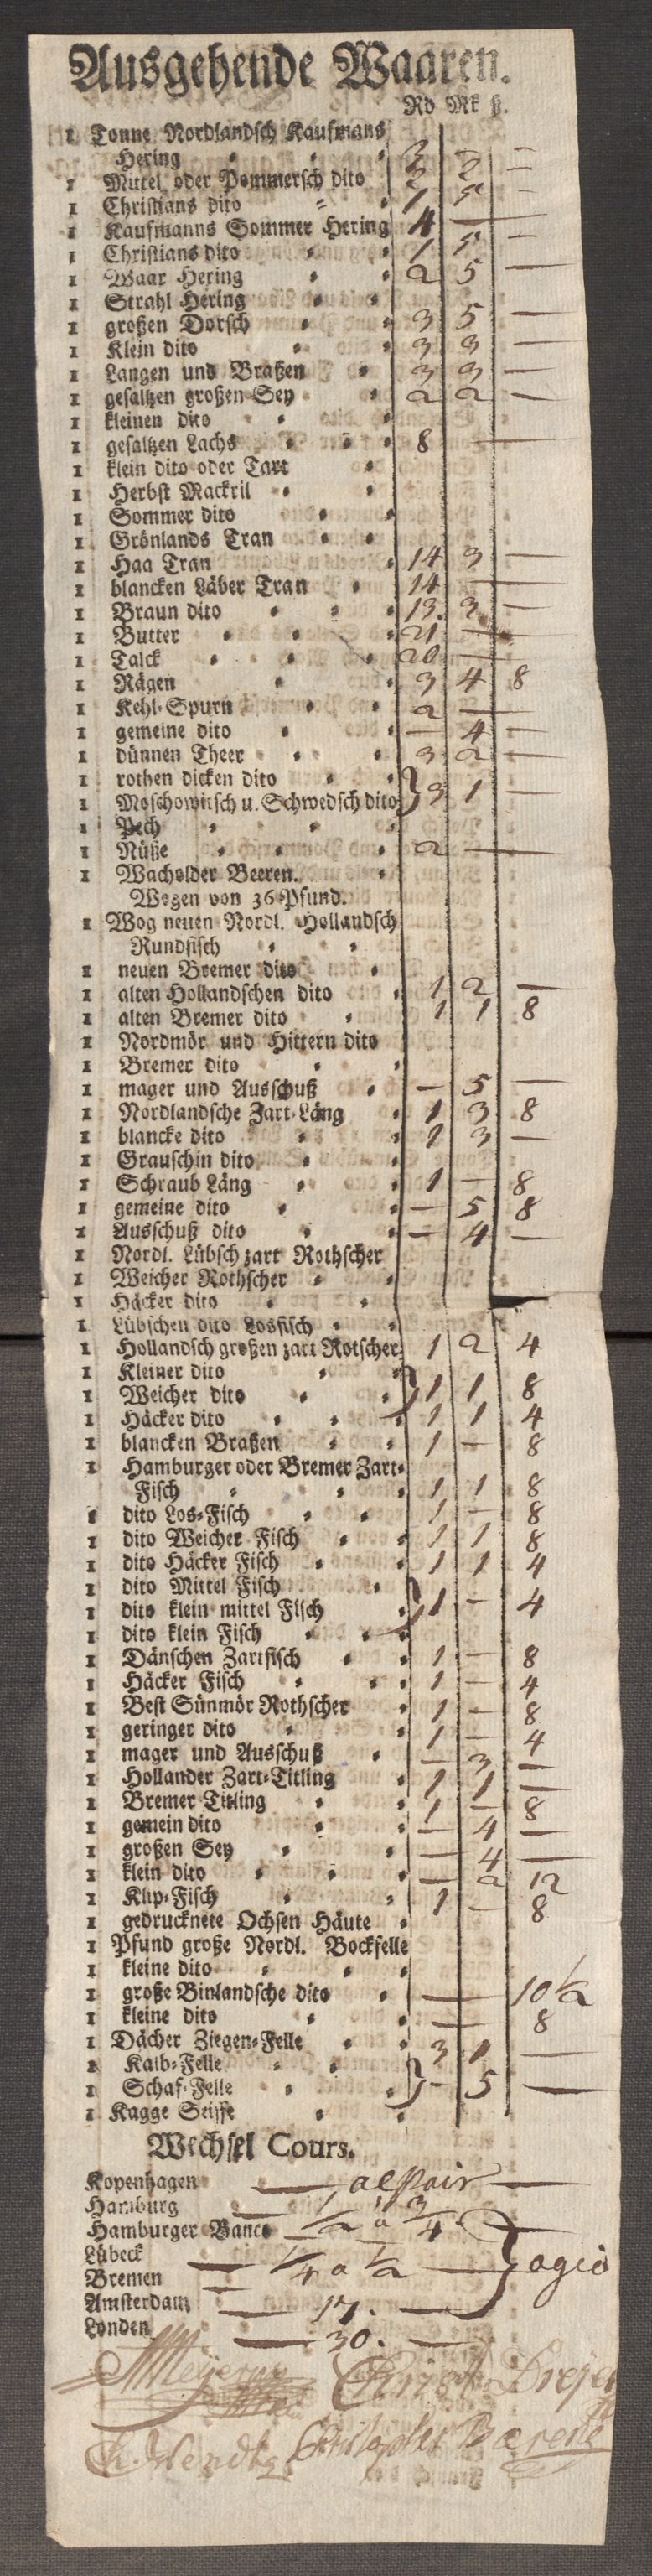 Ausgehende Waaren.
Rd Mk ß.
1 Tonne Nordlandsch Kaufmans
Hering 3 2 —
1 Mittel oder Pommersch dito 3 2 —
1 Christians dito 1 5 —
1 Kaufmanns Sommer Hering 4 —
1 Christians dito 1 5 —
1 Waar Hering 2 5 —
1 Strahl Hering
1 großen Dorsch 3 5 —
1 Klein dito 3 3 —
1 Langen und Braßen 3 3 —
1 gesaltzen großen Sey 2 2 —
1 kleinen dito
1 gesaltzen Lachs 8 —
1 klein dito oder Tart
1 Herbst Mackril
1 Sommer dito
1 Grönlands Tran
1 Haa Tran 14 3 —
1 blancken Läber Tran 14 —
1 Braun dito 13 3 —
1 Butter 21 —
1 Talck 20 —
1 Rägen 3 4 8
1 Kehl-Spurn 2 —
1 gemeine dito — 4 —
1 dünnen Theer 3 2 —
1 rothen dicken dito
1 Moschowitsch u. Schwedsch dito } 3 1 —
1 Pech
1 Nüße 2 —
1 Wacholder Beeren.
Wogen von 36 Pfund.
1 Wog neuen Nordl. Hollandsch
Rundfisch
1 neuen Bremer dito
1 alten Hollandschen dito 1 2 —
1 alten Bremer dito 1 1 8
1 Nordmör und Hittern dito
1 Bremer dito
1 mager und Ausschuß — 5 —
1 Nordlandsche Zart-Läng 1 3 8
1 blancke dito 1 3 —
1 Grauschin dito
1 Schraub Läng 1 — 8
1 gemeine dito — 5 8
1 Ausschuß dito — 4 —
1 Nordl. Lübsch zart Rothscher
1 Weicher Rothscher
1 Häcker dito
1 Lübschen dito Losfisch
1 Hollandsch großen zart Rotscher 1 2 4
1 Kleiner dito
1 Weicher dito } 1 1 8
1 Häcker dito 1 1 4
1 blancken Braßen 1 — 8
1 Hamburger oder Bremer Zart-
Fisch 1 1 8
1 dito Los-Fisch 1 — 8
1 dito Weicher Fisch 1 1 8
1 dito Häcker Fisch 1 1 4
1 dito Mittel Fisch
1 dito klein mittel Fisch } 1 — 4
1 dito klein Fisch
1 Dänschen Zartfisch 1 — 8
1 Häcker Fisch 1 — 4
1 Best Sünmör Rothscher 1 — 8
1 geringer dito 1 — 4
1 mager und Ausschuß — 3 —
1 Hollander Zart-Titling 1 1 —
1 Bremer Titling 1 — 8
1 gemein dito — 4 —
1 großen Sey — 4 —
1 klein dito — 2 12
1 Klip-Fisch 1 — 8
1 gedrucknete Ochsen Häute
1 Pfund große Nordl. Bockfelle
1 kleine dito
1 große Binlandsche dito — 10 1/2
1 kleine dito — 8
1 Dächer Ziegen-Felle 3 1 —
1 Kalb-Felle
1 Schaf-Felle } — 5 —
1 Kagge Seiffe
Wechsel Cours.
Kopenhagen — al pair —
Hamburg
Hamburger Banco — 1/2 a 3/4 —
Lübeck — 1/4 a 1/2 — } agio
Bremen
Amsterdam — 17. —
London — 30. —